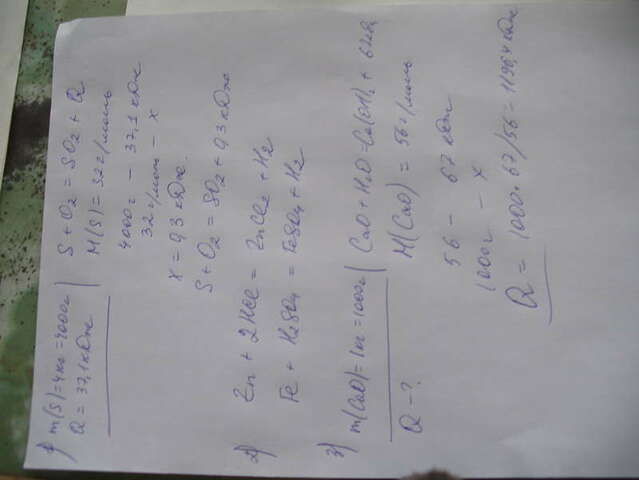 1) m(S)=4кг=4000г | S + O2 = SO2 + Q
Q = 37,1 кДж | M(S) = 32 г/моль
4000г – 37,1 кДж
32 г/моль – x
x = 0,3 кДж.
S + O2 = SO2 + 0,3 кДж
2) Zn + 2HCl = ZnCl2 + H2
Fe + H2SO4 = FeSO4 + H2
3) m(CaO)=1кг=1000г | CaO + H2O = Ca(OH)2 + 67кДж
Q – ? | M(CaO) = 56 г/моль
56 – 67 кДж
1000г – x
Q = 1000 · 67/56 = 1196,4 кДж